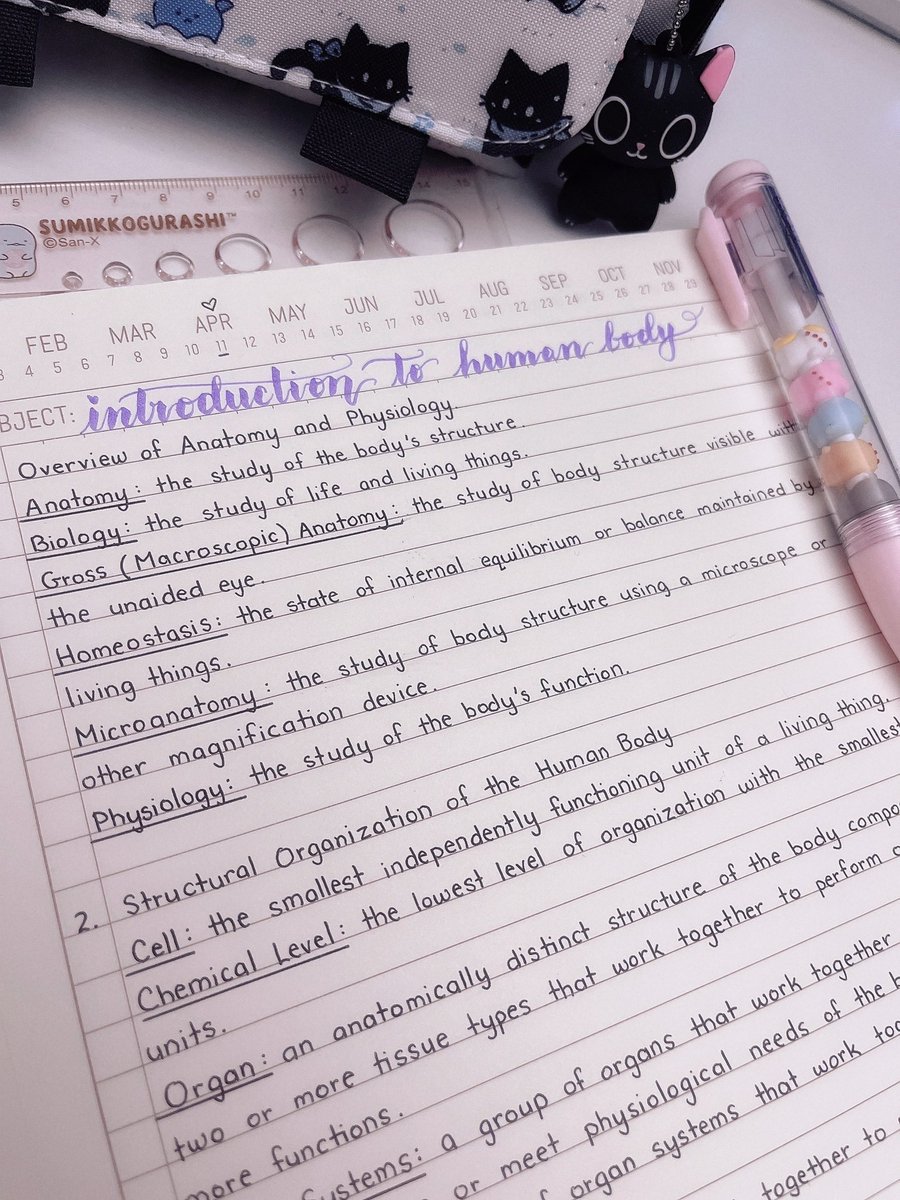 5 6 7 8 9 10 11 12 14 15
SUMIKKOGURASHI™
©San-X
FEB MAR APR MAY JUN JUL AUG SEP OCT NOV
3 4 5 6 7 8 9 10 11 12 13 14 15 16 17 18 19 20 21 22 23 24 25 26 27 28 29
BJECT: introduction to human body
Overview of Anatomy and Physiology
Anatomy: the study of the body's structure.
Biology: the study of life and living things.
Gross (Macroscopic) Anatomy: the study of body structure visible with
the unaided eye.
Homeostasis: the state of internal equilibrium or balance maintained by
living things.
Microanatomy: the study of body structure using a microscope or
other magnification device.
Physiology: the study of the body's function.
2. Structural Organization of the Human Body
Cell: the smallest independently functioning unit of a living thing.
Chemical Level: the lowest level of organization with the smallest
units.
Organ: an anatomically distinct structure of the body compo
two or more tissue types that work together to perform
more functions.
ystems: a group of organs that work together
or meet physiological needs of the b
organ systems that work tog
together to